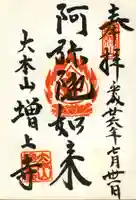 奉拝 平成廿六年七月
阿弥陀如来
大本山 増上寺